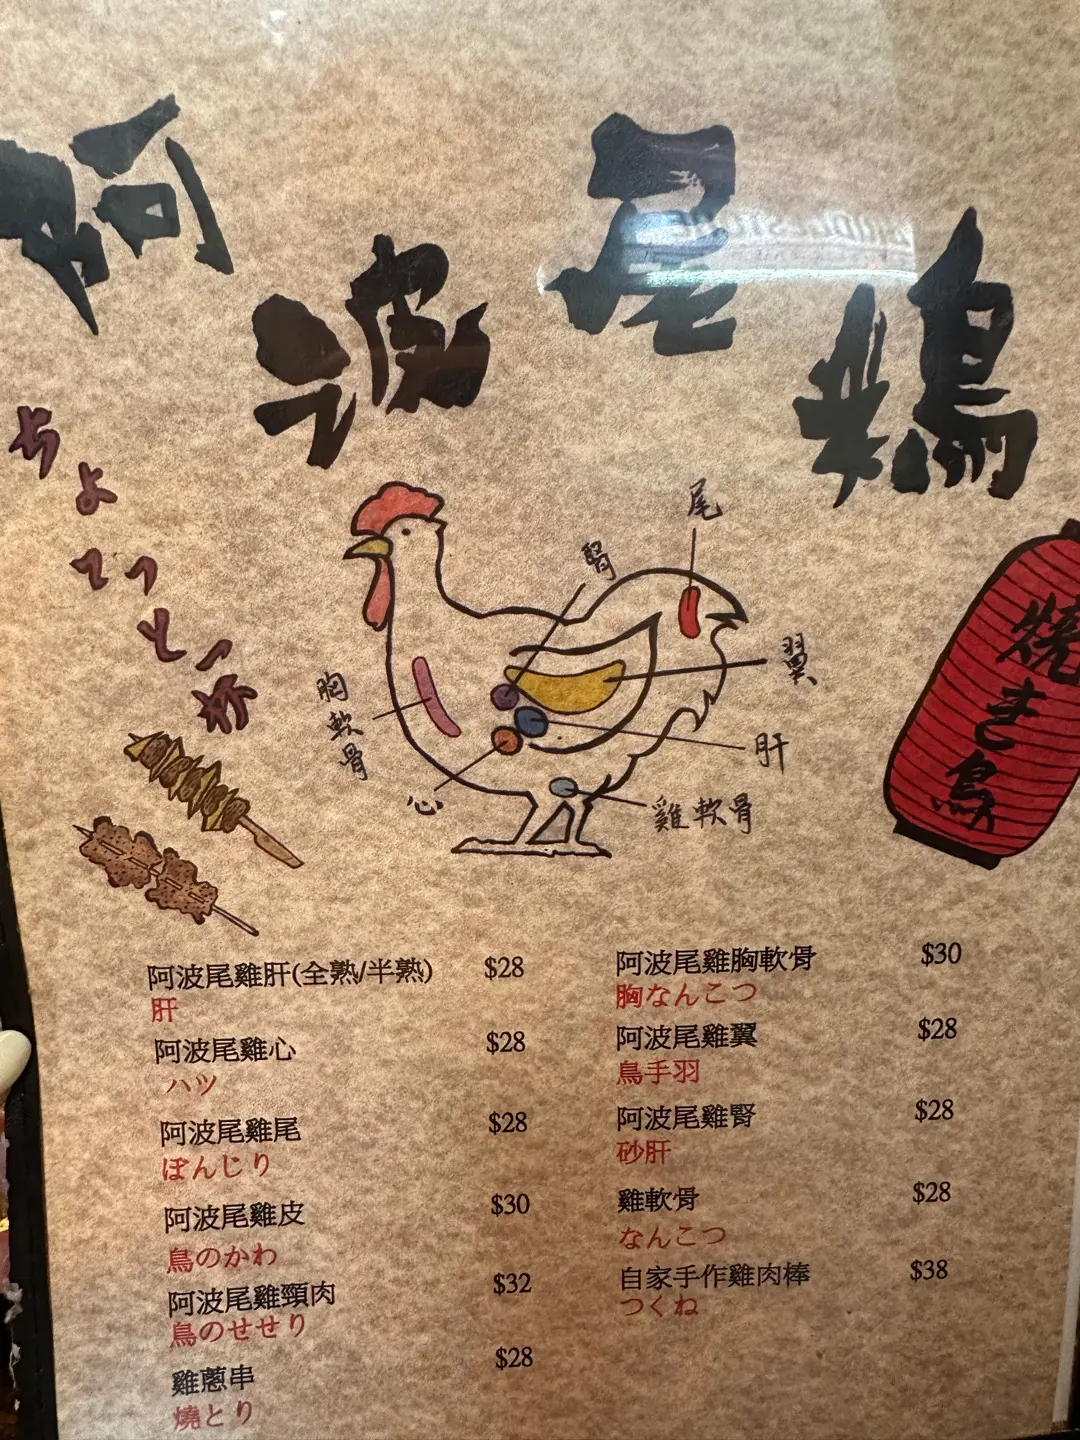 阿波尾鷄
ちょっとー杯
尾
腎
翼
胸軟骨
肝
心
雞軟骨
焼き鳥
阿波尾雞肝(全熟/半熟) $28
肝
阿波尾雞心 $28
ハツ
阿波尾雞尾 $28
ぼんじり
阿波尾雞皮 $30
鳥のかわ
阿波尾雞頸肉 $32
鳥のせせり
雞蔥串 $28
燒とり
阿波尾雞胸軟骨 $30
胸なんこつ
阿波尾雞翼 $28
鳥手羽
阿波尾雞腎 $28
砂肝
雞軟骨 $28
なんこつ
自家手作雞肉棒 $38
つくね